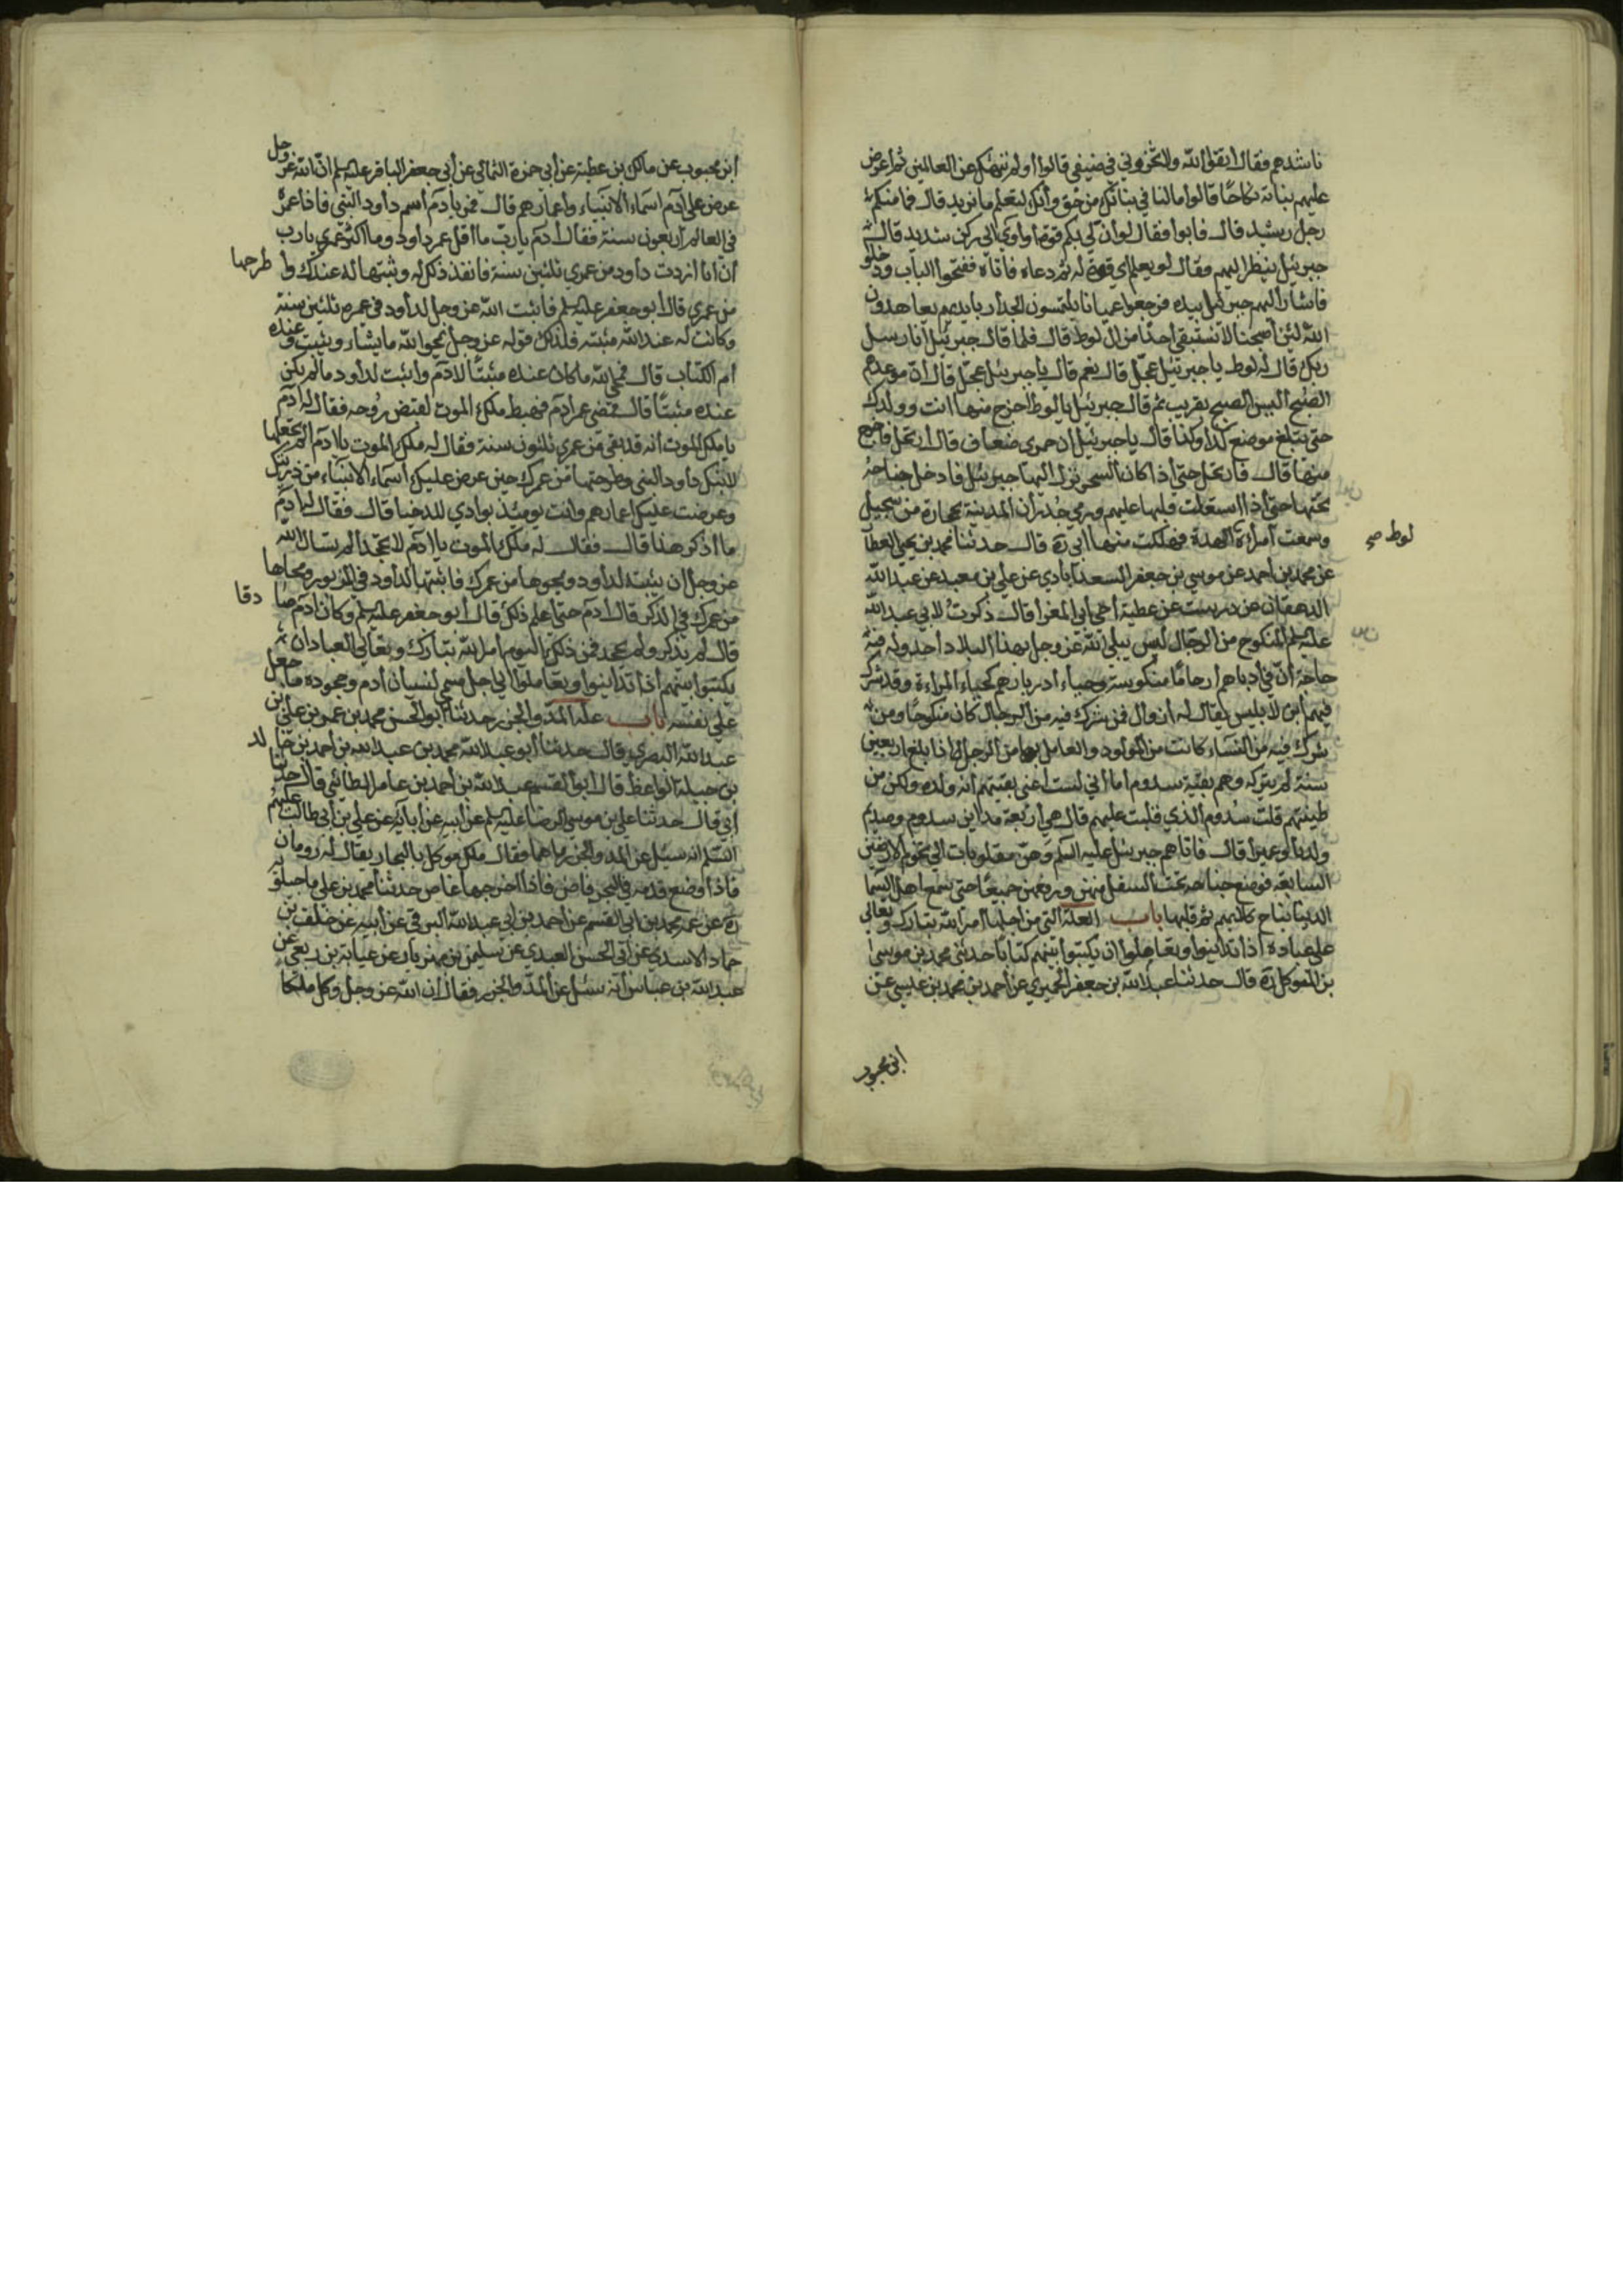 ناشدهم فقال اتقوا الله ولا تخزوني في ضيفي قالوا أولم ننهك عن العالمين ثم أعرض
عليهم بناته نكاحًا قالوا مالنا في بناتك من حق وأنك لتعلم ما نريد قال فما منكم
رجل رشيد قال فابوا فقال لو أن لي بكم قوة أو آوي إلى ركن شديد قال
جبرئيل ينظر اليهم وقال لو يعلم اي قوة له ثم دعاه فاتاه ففتحوا الباب ودخلوا
فاشار اليهم جبرئيل بيده فرجعوا عميانا يلتمسون الجدار بايديهم يعاهدون
الله لئن أصبحنا لا نستبقي أحدًا من ال لوط قال فلما قال جبرئيل أنا رسل
ربك قال له لوط يا جبرئيل عجل قال نعم قال يا جبرئيل عجل قال أن موعدهم
الصبح اليس الصبح بقريب ثم قال جبرئيل يا لوط أخرج منها انت وولدك
حتى تبلغ موضع كذا وكذا قال يا جبرئيل أن حمري ضعاف قال ارتحل فاخرج
منها قال فارتحل حتى أذا كان السحر نزل اليها جبرئيل فادخل جناحه
تحتها حتى أذا استعلت قلبها عليهم ورمي جدران المدينة بحجارة من سجيل
وسمعت أمرأة الهدة فهلكت منها ابي ره قال حدثنا محمد بن يحيى العطار
لوط صح
عن محمد بن أحمد عن موسي بن جعفر السعدآبادي عن علي بن معبد عن عبد الله
الدهقان عن درست عن عطية أخي أبي المغرا قال ذكرت لابي عبد الله
عليه لم المنكوح من الرجال ليس يبلي الله عز وجل بهذا البلاء أحد وله فيه
حاجة أن في أدبارهم أرحامًا منكوسة وحياء أدبارهم كحياء المراءة وقد شرك
فيهم ابن لابليس يقال له زوال فمن شرك فيه من الرجال كان منكوحًا ومن
شرك فيه من النساء كانت من المولود والعامل بها من الرجل اذا بلغ اربعين
سنة لم يتركه وهم بقية سدوم اما اني لست اعني بقيتهم أنه ولده ولكن من
طينتهم قلت سدوم الذي قلبت عليهم قال هي أربعة مداين سدوم وصديم
ولدنا وعميرا قال فاتاهم جبرئيل عليه السلم وهن مقلوبات الي تخوم الارضين
السابعة فوضع جناحه تحت السفلي منهن ورفعهن جميعًا حتى سمع اهل السما
الدنيا نباح كلابهم ثم قلبها باب العلة التي من أجلها أمر الله تبارك وتعالي
علي عباده أذا تداينوا وتعاملوا ان يكتبوا بينهم كتابا حدثني محمد بن موسى
بن المتوكل ره قال حدثنا عبد الله بن جعفر الحميري عن أحمد بن محمد بن عيسي عن
ابن محبوب
أبن محبوب عن مالك بن عطية عن أبي حمزة الثمالي عن أبي جعفر الباقر عليه لم أن الله عز وجل
عرض علي آدم اسماء الانبياء وأعمارهم قال فمر بادم أسم داود النبي فاذا عمره
في العالم أربعون سنة فقال أدم يا رب ما أقل عمر داود وما اكثر عمري يا رب
أن انا ازددت داود من عمري ثلثين سنة فانفذ ذلك له وثبتها له عندك وا طرحها
من عمري قال ابو جعفر عليه لم فاثبت الله عز وجل لداود في عمره ثلثين سنة
وكانت له عند الله مثبتة فلذلك قوله عز وجل يمحوا الله ما يشاء ويثبت وعنده
أم الكتاب قال فمحي الله ما كان عنده مثبتًا لادم وأثبت لداود مالم يكن
عنده مثبتًا قال فمضي عمر ادم فهبط ملك الموت لقبض روحه فقال له آدم
يا ملك الموت أنه قد بقي من عمري ثلثون سنة فقال له ملك الموت يا ادم الم تجعلها
لابنك داود النبي وطرحتها من عمرك حين عرض عليك أسماء الانبياء من ذريتك
وعرضت عليك أعمارهم وانت يومئذ بوادي للدخيا قال فقال له ادم
ما اذكر هذا قال فقال له ملك الموت يا ادم لا تجحد الم تسال الله
عز وجل ان يثبتها لداود ويمحوها من عمرك فاثبتها لداود في الزبور ومحاها
من عمرك في الذكر قال ادم حتى أعلم ذلك قال أبو جعفر عليه لم وكان ادم صا دقا
قال لم يذكر ولم يجحد فمن ذلك اليوم أمر الله تبارك وتعالي العباد ان
يكتبوا بينهم أذا تداينوا وتعاملوا الي اجل مسمي لنسيان أدم وجحوده ما جعل
علي نفسه باب علة المد والجزر حدثنا أبو الحسن محمد بن عمر بن علي بن
عبد الله البصري قال حدثنا أبو عبد الله محمد بن عبد الله بن أحمد بن خا لد
بن جبلة الواعظ قال ابو القسم عبد الله بن أحمد بن عامر الطائي قال حدثنا
أبي قال حدثنا علي بن موسي الرضا عليه لم عن ابيه عن أبآيه عن علي بن أبي طالب عليهم
السلم انه سئل عن المد والجزر ما هما فقال ملك موكل بالبحار يقال له رومان
فاذا وضع قدمه في البحر فاض فاذا اخرجها غاص حدثنا محمد بن علي ماجيلويه
ره عن عمه محمد بن ابي القسم عن احمد بن ابي عبد الله البرقي عن أبيه عن خلف بن
حماد الاسدي عن أبي الحسن العبدي عن سليمن بن مهران عن عباية بن ربعي عن
عبد الله بن عباس أنه سئل عن المد والجزر فقال أن الله عز وجل وكل ملكا